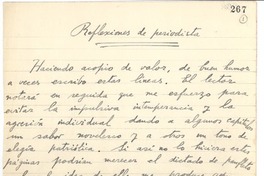 267
1
Reflexiones de periodista
Haciendo acopio de valor, de buen humor
a veces escribo estas líneas. El lector
notará en seguida que me esfuerzo para
evitar la impulsiva intemperancia y la
agresiva individual dando a algunos capít
un sabor novelesco y a otros un tono de
elegía patriótica. Si así no lo hiciera estas
páginas podrían merecer el dictado de panfleto